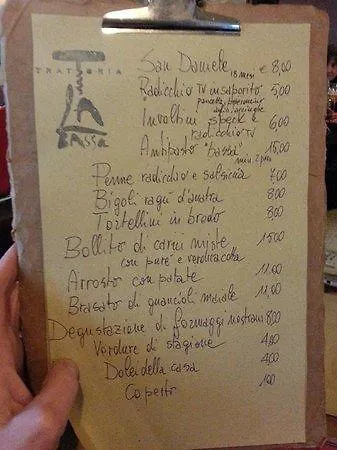 TRATTORIA
LA
BASSA
San Daniele 18 mesi € 8,00
Radicchio TV insaporito 5,00
pancetta, peperoncino
aglio, acciughe
Involtini speck e
radicchio TV 6,00
Antipasto "bassa" 15,00
min. 2 pers
Penne radicchio e salsiccia 7,00
Bigoli ragù d'anatra 8,00
Tortellini in brodo 8,00
Bollito di carni miste 15,00
con purè e verdura cotta
Arrosto con patate 11,00
Brasato di guanciali maiale 11,00
Degustazione di formaggi nostrani 8,00
Verdure di stagione 4,00
Dolci della casa 4,00
Coperto 1,00